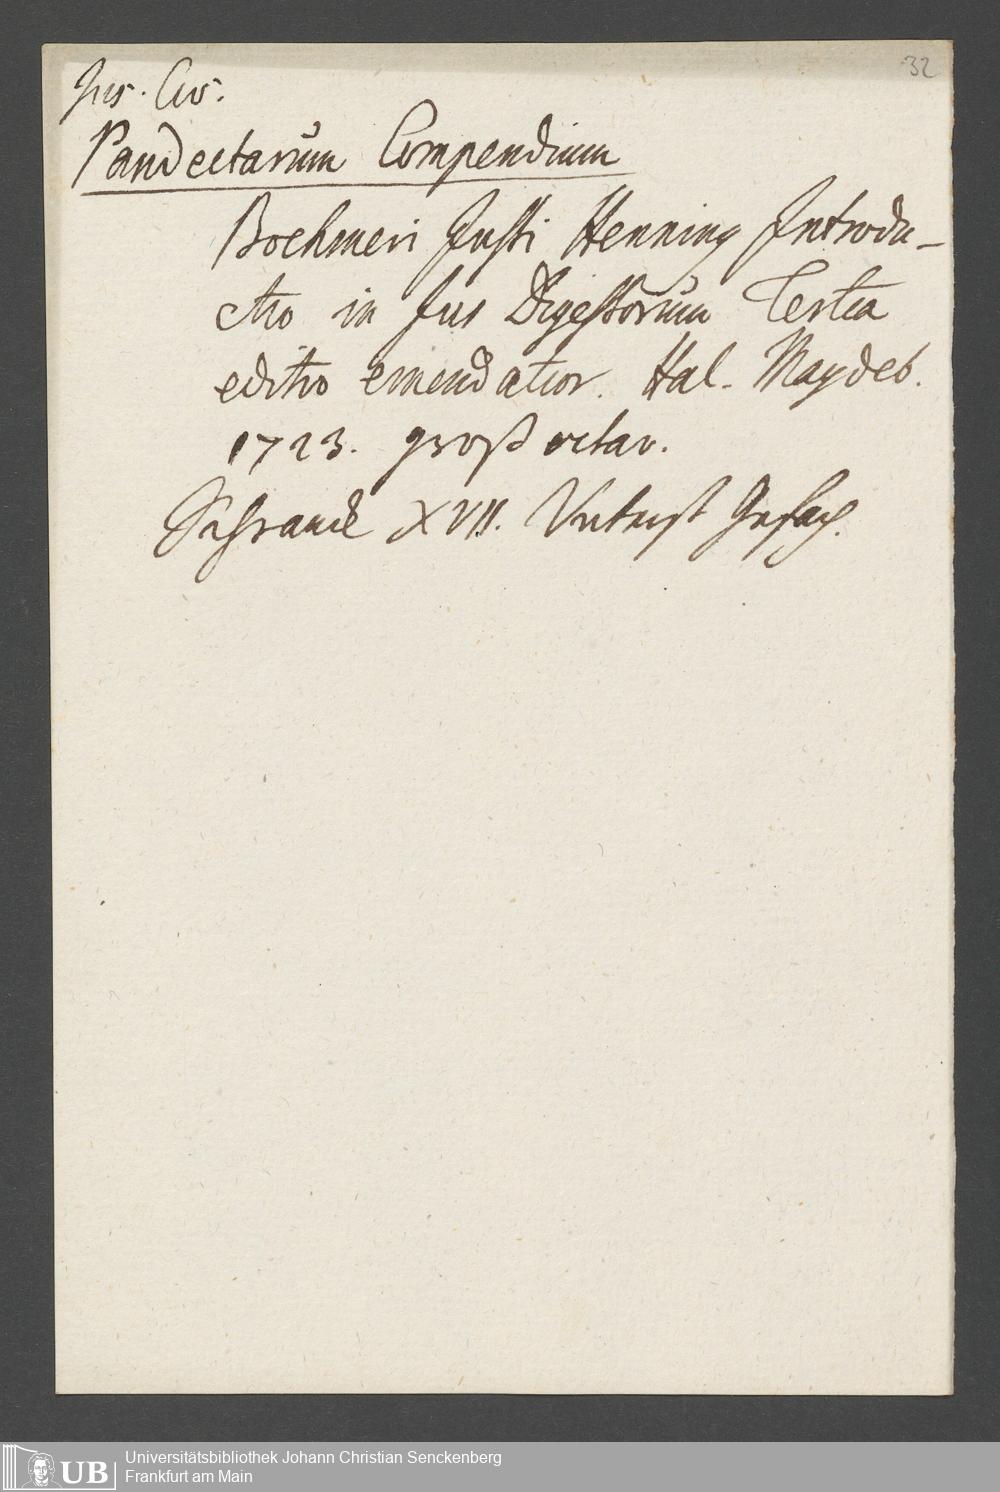 32
Jus. Civ.
Pandectarum Compendium
Boehmeri Justi Henning Introdu-
ctio in Jus Digestorum Tertia
editio emendatior. Hal. Magdeb.
1723. groß octav.
Schranck XVII. Unterst Gefach.
UB
Universitätsbibliothek Johann Christian Senckenberg
Frankfurt am Main